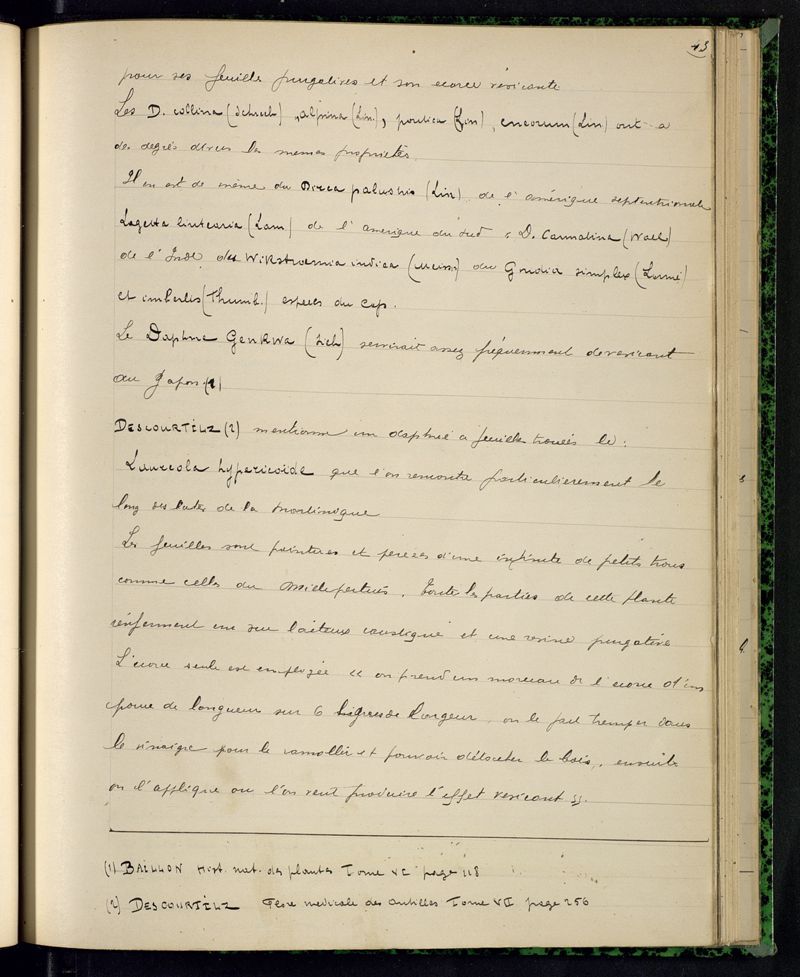 13
pour ses feuilles purgatives et son ecorce vesicante
Les D. collina (Schreb) alpina (Lin.), pontica (Lin), cneorum (Lin) ont a
des degrés divers les memes proprietés.
Il en est de même du Dirca palustris (Lin) de l'amérique septentrionale
Lagetta lintearia (Lam) de l'amerique du Sud, D. Cannabina (Wall)
de l'Inde du Wikstroemia indica (Meiss) du Gnidia simplex (
et imberbis (Thumb.) especes du cap.
Le Daphne Genkwa (Sieb) servirait assez fréquemment de vesicant
au Japon (1)
DESCOURTILZ (2) mentionne un daphné a feuilles trouées le :
Laureola hypericoide que l'on rencontre particulierement le
long des cotes de la Martinique
Les feuilles sont pointues et percées d'une infinite de petits trous
comme celles du Millepertuis. Toute les parties de cette plante
renferment un suc laiteux caustique et une resine purgative
L'ecorce seule est employée « on prend un morceau de l'ecorce d'un
pouce de longueur sur 6 lignes de largeur, on le fait tremper dans
le vinaigre pour le ramollir et pouvoir détacher le bois, ensuite
on l'applique ou l'on veut produire l'effet vesicant ».
(1) BAILLON Hist. nat. des plantes Tome VI page 118
(2) DESCOURTILZ Flore medicale des Antilles Tome VII page 256